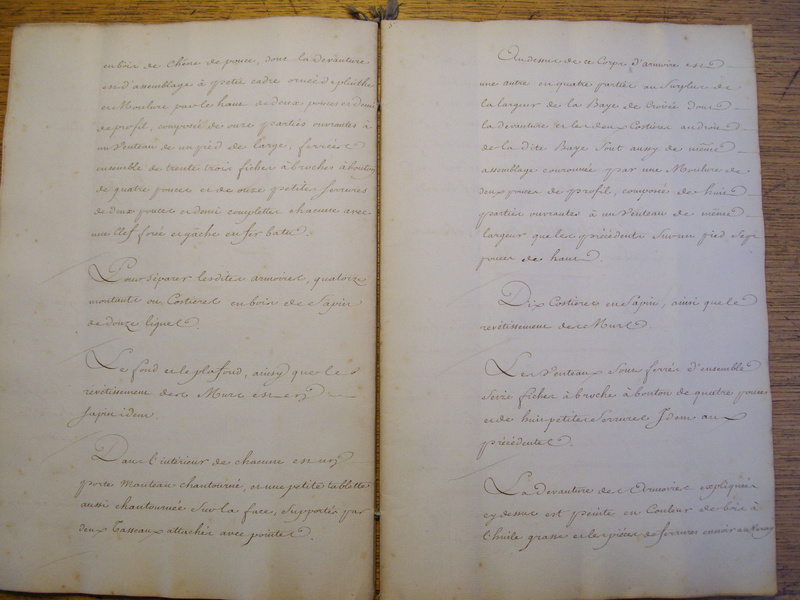 en bois de Chêne de pouce, dont la devanture
est d'assemblage à petit cadre ornée d'eplinthe
et Moulure par le haut de deux pouces et demi
de profil, composé de onze parties ouvrantes à
un Venteau de un pied de large, ferrées
ensemble de trente trois fiches à broches à bouton
de quatre pouces et de onze petites serrures
de deux pouces et demi complettes chacune avec
une Clef forée et gâche en fer battu.
Pour séparer lesdites armoires, quatorze
montants ou Costieres en bois de Sapin
de douze lignes.
Le fond et le plafond, aussy que le
revêtissement des Murs est en
sapin idem.
Dans l'intérieur de chacune est un
porte manteau chantourné, et une petite tablette
aussi chantournée sur la face, supportés par
deux Tasseaux attachés avec pointes.
Au dessus de ce Corps d'armoire est
une autre en quatre parties au Surplus de
la largeur de la Baye de Croisée dont
la devanture et les deux Costieres au droit
de la dite Baye sont aussy de même
assemblage couronnée par une Moulure de
deux pouces de profil, composée de huit
parties ouvrantes à un Venteau de même
largeur que les précédents sur un pied sept
pouces de haut.
Dix Costieres en sapin, ainsi que le
revêtissement des Murs.
Les Venteaux sont ferrés d'ensemble
Seize fiches à broche à bouton de quatre pouces
et de huit petites Serrures Idem aux
précédentes.
La Devanture des Armoires expliquées
cy dessus est peinte en Couleur de bois à
l'huile grasse et les pièces de ferrures en noir au